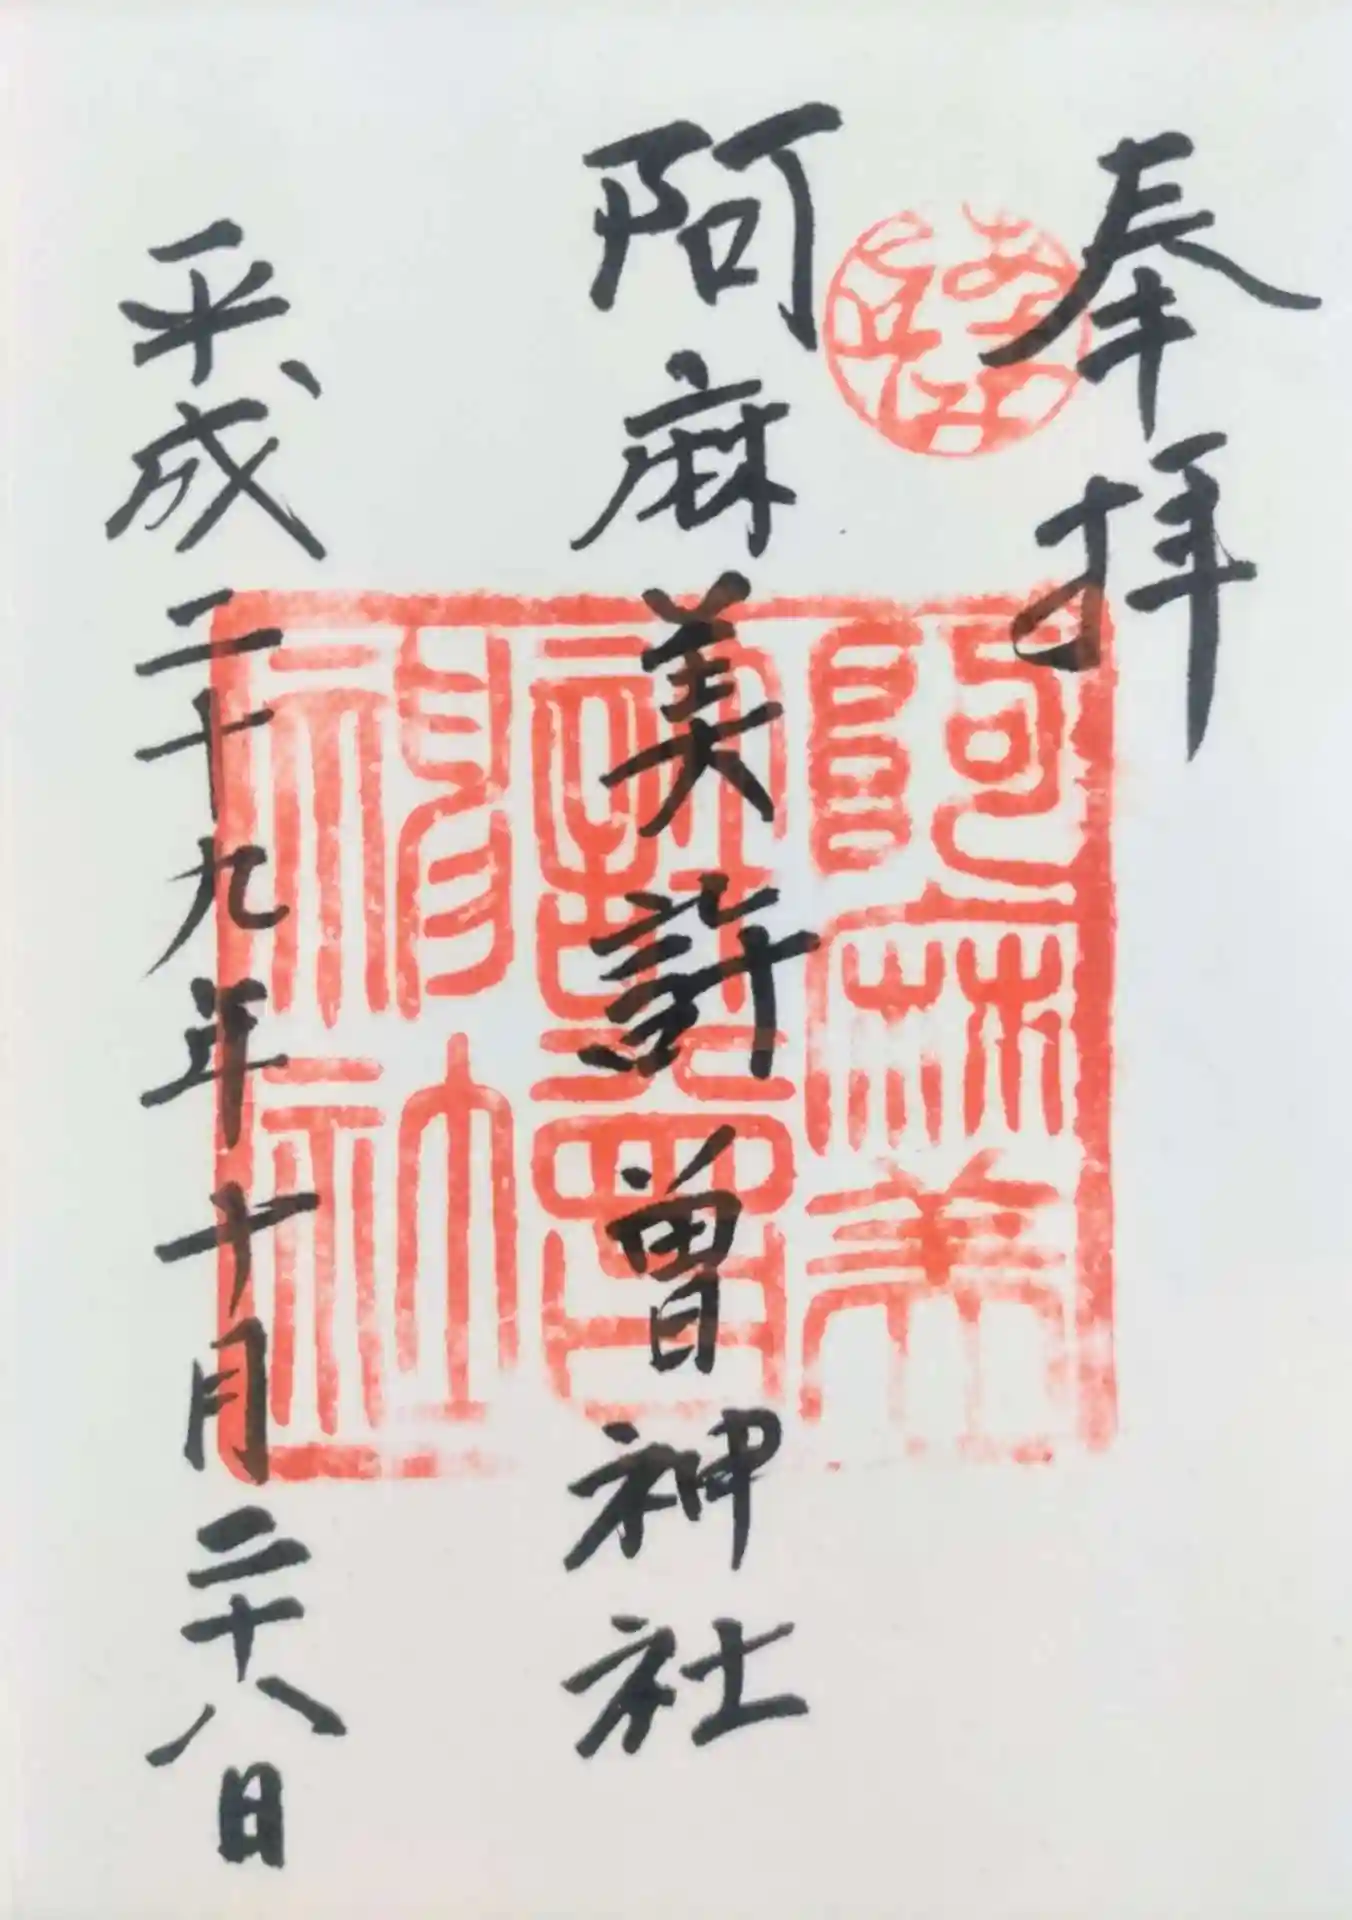 奉拝
阿麻美許曽神社
平成二十九年十月二十八日
阿麻美
許曽
神社